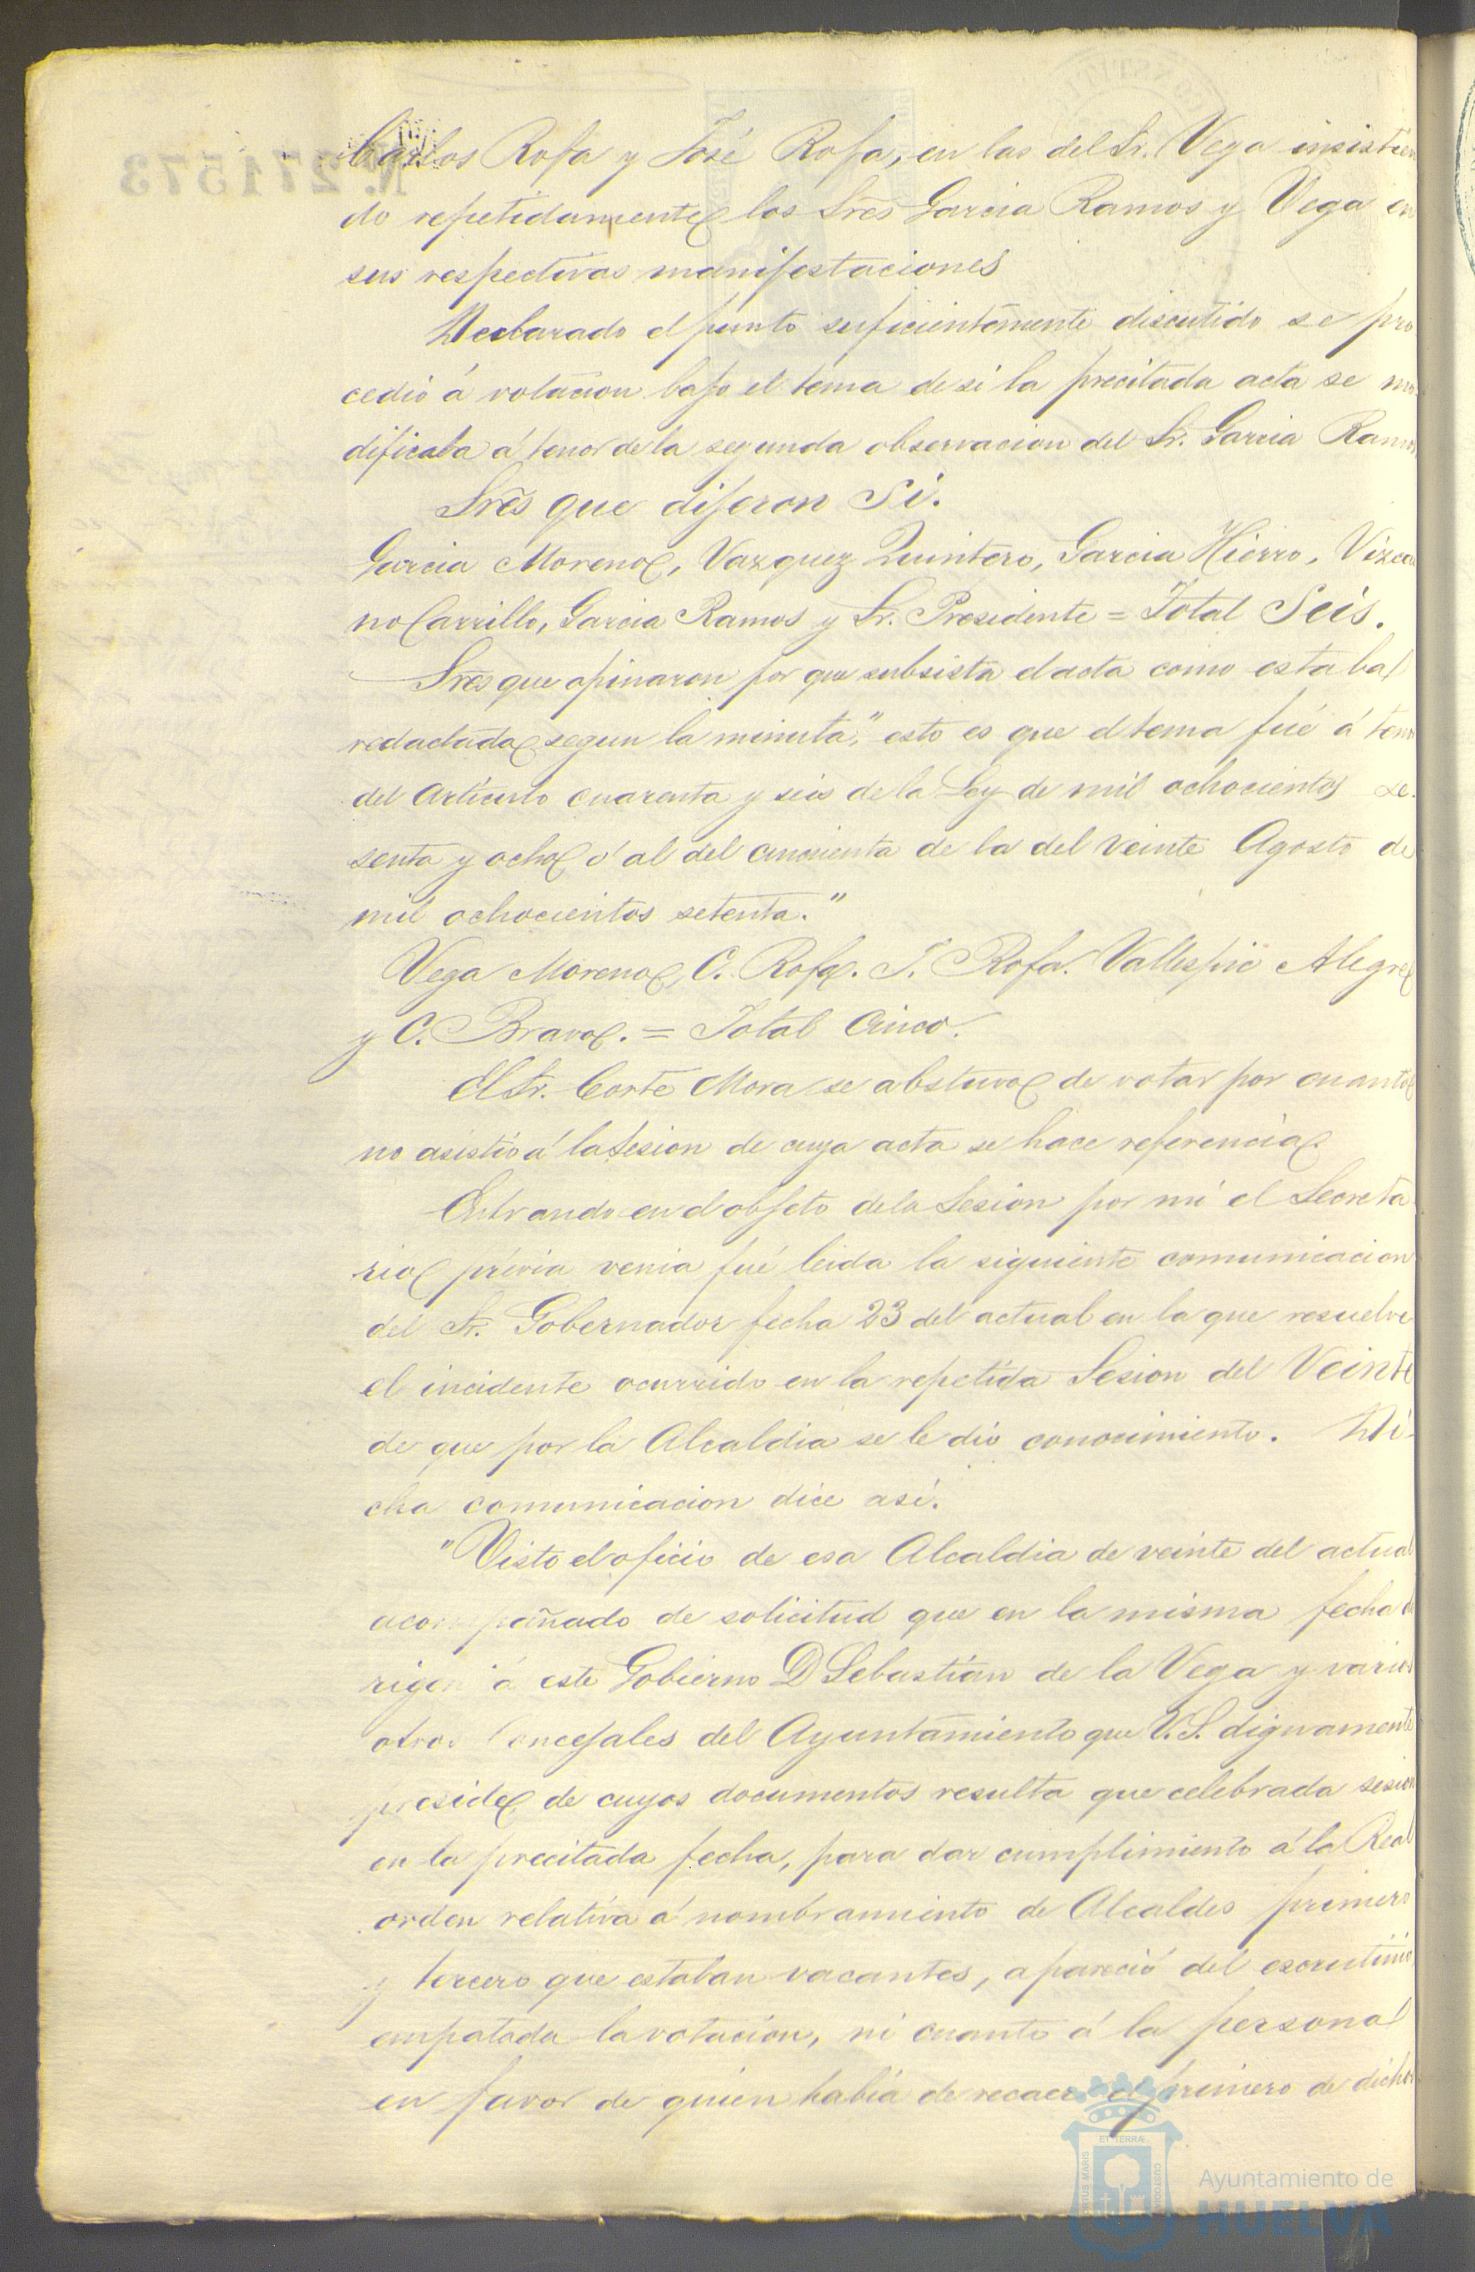 Carlos Rofa y José Rofa, en las del Sr. Vega insistien
do repetidamente los Sres Garcia Ramos y Vega en
sus respectivas manifestaciones
Declarado el punto suficientemente discutido se pro
cedió á votacion bajo el tema de si la precitada acta se mo
dificaba á tenor de la segunda observacion del Sr. Garcia Ramos
Sres que dijeron Si.
Garcia Moreno, Vazquez Quintero, Garcia Hierro, Vizcai
no Carrillo, Garcia Ramos y Sr. Presidente = Total Seis.
Sres que opinaron por que subsista el acta como estaba
redactada segun la minuta, "esto es que el tema fué á tenor
del Articulo cuarenta y seis de la Ley de mil ochocientos se
senta y ocho ó al del cincuenta de la del veinte Agosto de
mil ochocientos setenta."
Vega Moreno, C. Rofa. J. Rofa. Vallespin Alegre
y C. Bravo. = Total Cinco.
El Sr. Corte Mora se abstuvo de votar por cuanto
no asistió á la Sesion de cuya acta se hace referencia
Entrando en el objeto de la Sesion por mi el Secreta
rio prévia venia fué leida la siguiente comunicacion
del Sr. Gobernador fecha 23 del actual en la que resuelve
el incidente ocurrido en la repetida Sesion del Veinte
de que por la Alcaldia se le dio conocimiento. Di-
cha comunicacion dice asi.
"Visto el oficio de esa Alcaldia de veinte del actual
acompañado de solicitud que en la misma fecha di
rigen á este Gobierno D Sebastian de la Vega y varios
otros Concejales del Ayuntamiento que V.S. dignamente
preside de cuyos documentos resulta que celebrada sesion
en la precitada fecha, para dar cumplimiento á la Real
orden relativa á nombramiento de Alcaldes primero
y tercero que estaban vacantes, apareció del escrutinio
empatada la votacion, ni cuanto á la persona
en favor de quien habia de recaer el primero de dichos
Nº 271573
ET TERRÆ
PORTUS MARIS
CUSTODIA
Ayuntamiento de
HUELVA